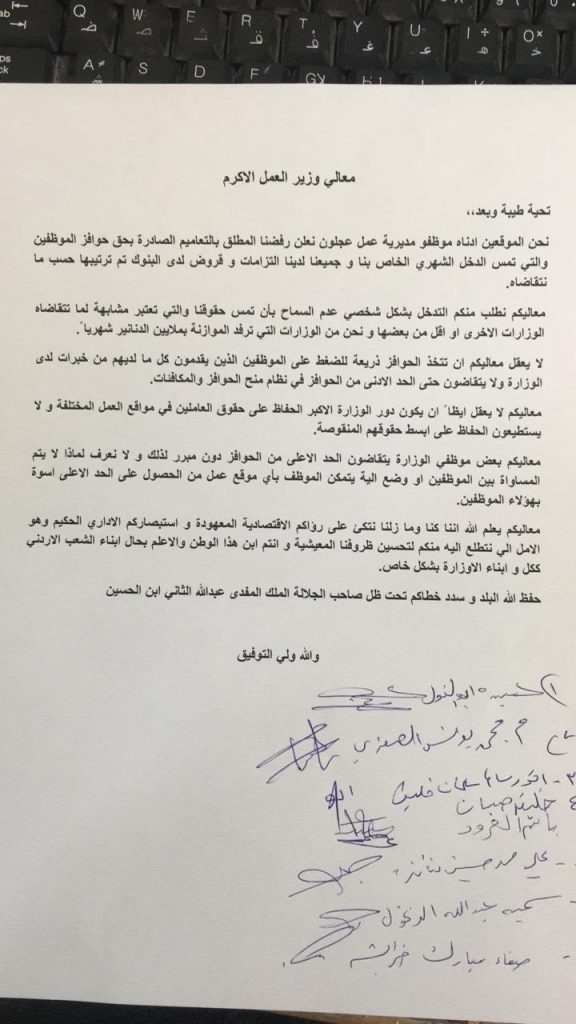 Q W E R T Y U I O ×
ض ص ث ق ف غ ع ه خ
A S D F
معالي وزير العمل الاكرم
تحية طيبة وبعد،،
نحن الموقعين ادناه موظفو مديرية عمل عجلون نعلن رفضنا المطلق بالتعاميم الصادرة بحق حوافز الموظفين
والتي تمس الدخل الشهري الخاص بنا و جميعنا لدينا التزامات و قروض لدى البنوك تم ترتيبها حسب ما
نتقاضاه.
معاليكم نطلب منكم التدخل بشكل شخصي عدم السماح بأن تمس حقوقنا والتي تعتبر مشابهة لما تتقاضاه
الوزارات الاخرى او اقل من بعضها و نحن من الوزارات التي ترفد الموازنة بملايين الدنانير شهرياً.
لا يعقل معاليكم ان تتخذ الحوافز ذريعة للضغط على الموظفين الذين يقدمون كل ما لديهم من خبرات لدى
الوزارة ولا يتقاضون حتى الحد الادنى من الحوافز في نظام منح الحوافز والمكافنات.
معاليكم لا يعقل ايظاً ان يكون دور الوزارة الاكبر الحفاظ على حقوق العاملين في مواقع العمل المختلفة و لا
يستطيعون الحفاظ على ابسط حقوقهم المنقوصة.
معاليكم بعض موظفي الوزارة يتقاضون الحد الاعلى من الحوافز دون مبرر لذلك و لا نعرف لماذا لا يتم
المساواة بين الموظفين او وضع الية يتمكن الموظف بأي موقع عمل من الحصول على الحد الاعلى اسوة
بهؤلاء الموظفين.
معاليكم يعلم الله اننا كنا وما زلنا نتكئ على رؤاكم الاقتصادية المعهودة و استبصاركم الاداري الحكيم وهو
الامل الي نتطلع اليه منكم لتحسين ظروفنا المعيشية و انتم ابن هذا الوطن والاعلم بحال ابناء الشعب الاردني
ككل و ابناء الاوزارة بشكل خاص.
حفظ الله البلد و سدد خطاكم تحت ظل صاحب الجلالة الملك المفدى عبدالله الثاني ابن الحسين
والله ولي التوفيق
م. محمد يونس
علي محمد حسين
سميه عبدالله
صفاء مبارك